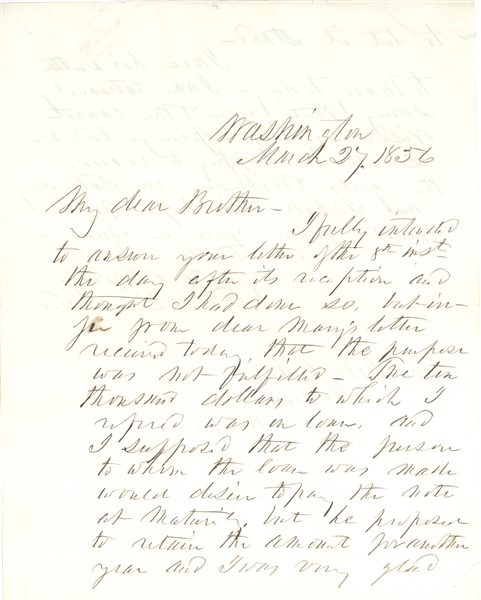 Washington
March 27, 1856
My dear Brother -
I fully intended
to answer your letter of the 8th inst-
the day after its reception and
thought I had done so, but in-
fer from dear Mary's letter
received today, that the purpose
was not fulfilled - The ten
thousand dollars to which I
refered was on loan, and
I supposed that the person
to whom the loan was made
would desire to pay the note
at maturity, but he proposed
to retain the amount for another
year and I was very glad